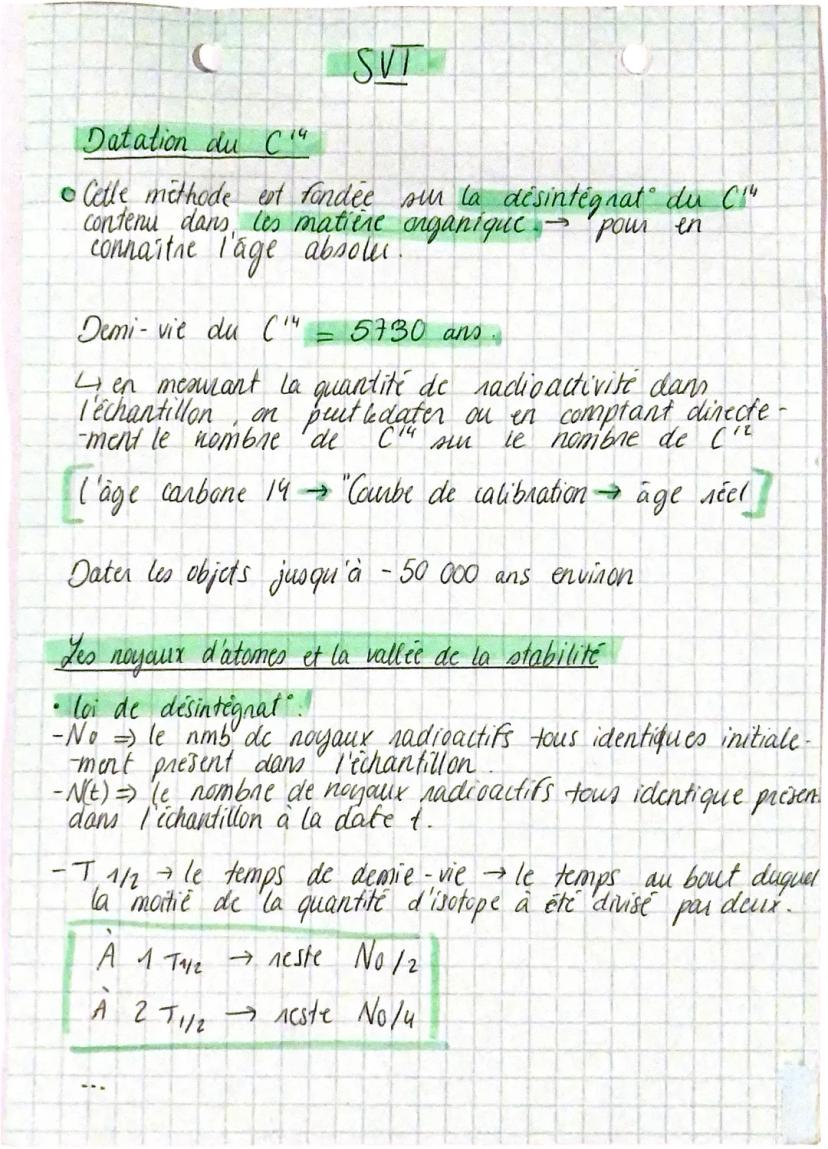 SVT
Datation du C¹⁴
Cette méthode est fondée sur la désintégrat° du C¹⁴
contenu dans les matière organique. → pour en
connaître l'âge absolu.
Demi-vie du C¹⁴ = 5730 ans.
↳ en mesurant la quantité de radioactivité dans
l'échantillon, on peut le dater ou en comptant directe-
-ment le nombre de C¹⁴ sur le nombre de C¹²
[l'âge carbone 14 → "Courbe de calibration → âge réel]
Dater les objets jusqu'à -50 000 ans environ
Les noyaux d'atomes et la vallée de la stabilité
• loi de désintégrat°:
-No ⇒ le nmb de noyaux radioactifs tous identiques initiale-
-ment présent dans l'échantillon.
-N(t) ⇒ le nombre de noyaux radioactifs tous identique présent
dans l'échantillon à la date t.
-T 1/2 → le temps de demie-vie → le temps au bout duquel
la moitié de la quantité d'isotope à été divisé par deux.
À 1 T1/2 → reste No/2
À 2 T1/2 → reste No/4
...